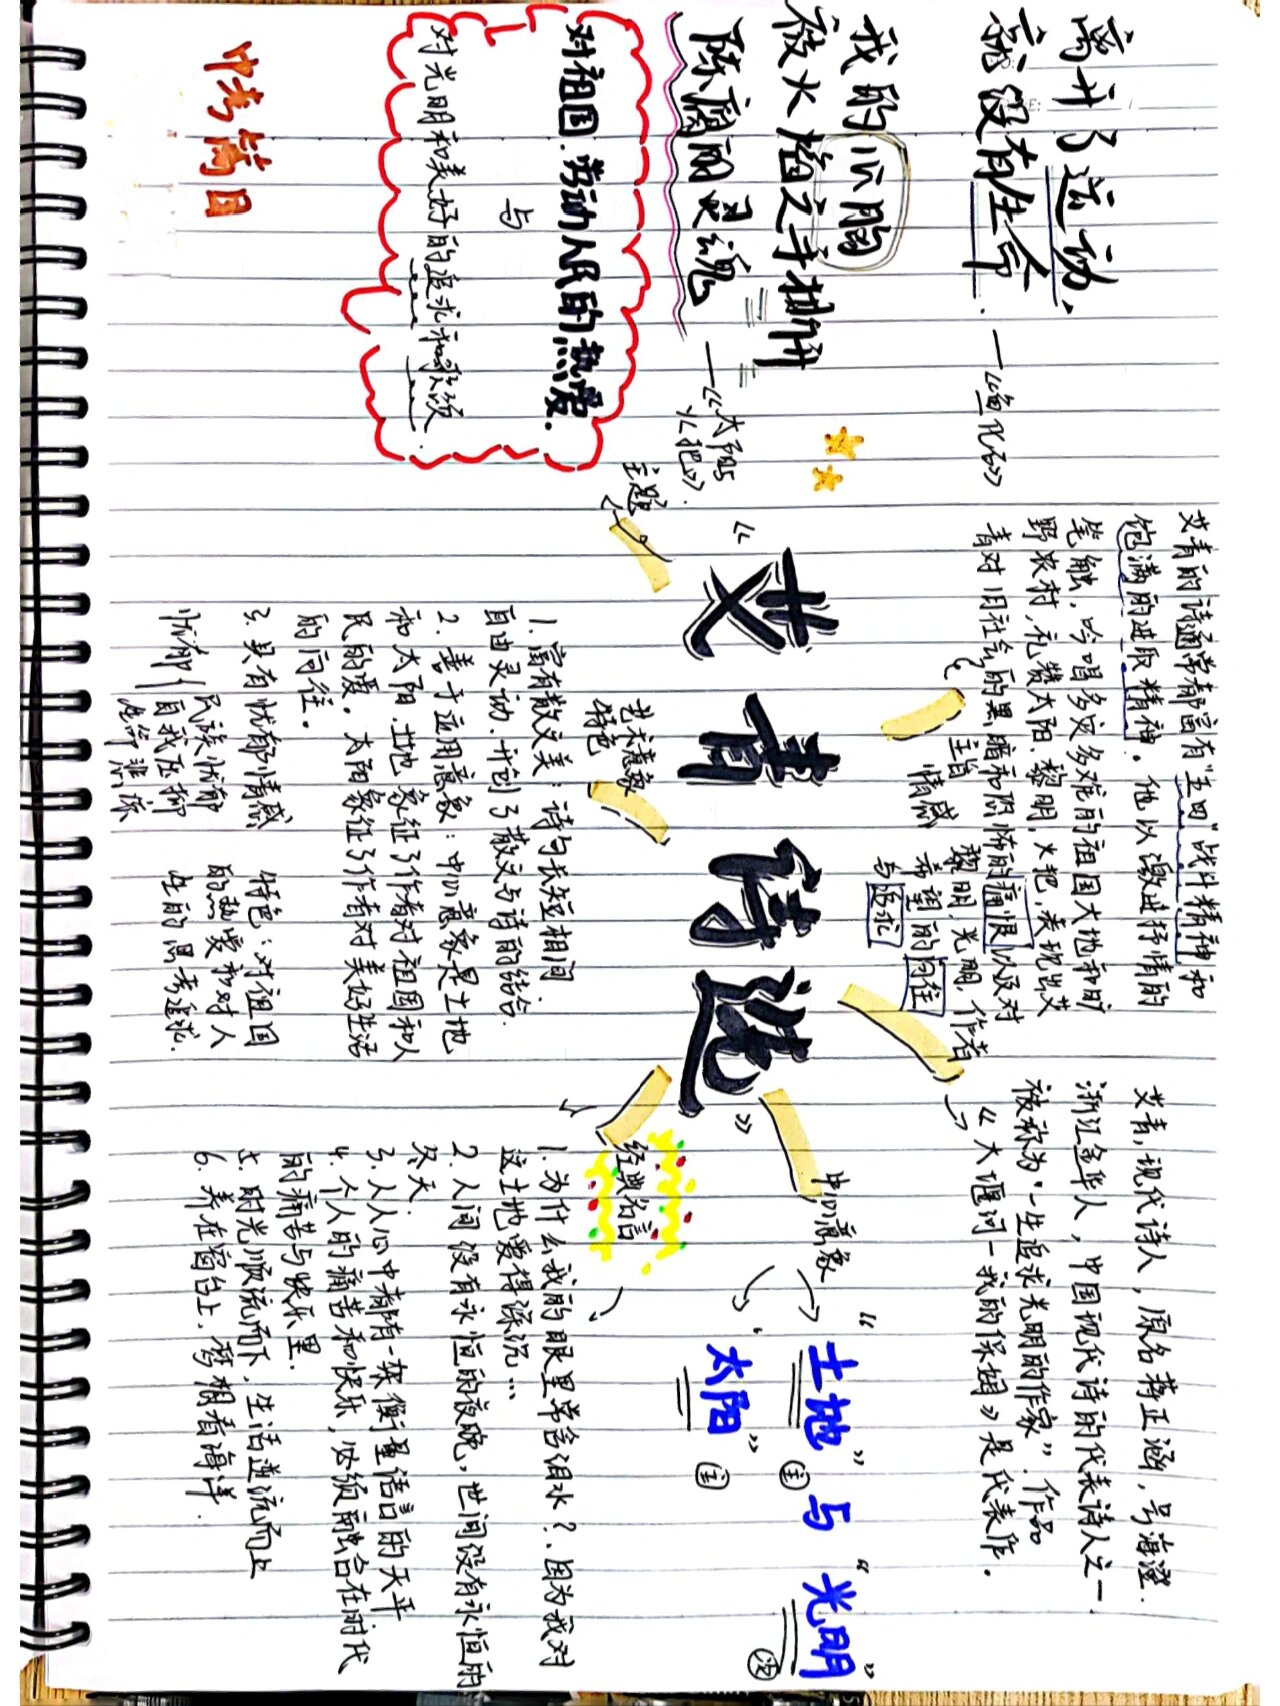 离开了运动、
就没有生命.
—《鱼化石》
我的心胸
被火焰之手撕开
陈腐的灵魂
—《太阳
火把》.
主题
对祖国.劳动人民的热爱.
与
对光明和美好的追求和歌颂.
中考篇目
艾青的诗通常都富有"主旋"战斗精神和
饱满的进取精神.他以激进抒情的
笔触,吟唱多灾多难的祖国大地和旷
野农村,礼赞太阳、黎明,火把,表现出艾
青对旧社会的黑暗和恐怖的痛恨以及对
黎明,光明,作者
希望的向往
与追求
主旨
情感
《艾青诗选》
艺术意象
特色
1.富有散文美:诗句长短相间
自由灵动,开创了散文与诗的结合.
2.善于运用意象:中心意象是土地
和太阳.土地象征了作者对祖国和人
民的爱.太阳象征了作者对美好生活
的向往.
3.具有忧郁情感
忧郁
民族忧郁
自我压抑
特色:对祖国
的热爱和对人
生的思考追求.
艾青,现代诗人,原名蒋正涵,号海澄.
浙江金华人,中国现代诗的代表诗人之一
被称为"一生追求光明的作家".作品
《大堰河—我的保姆》是代表作.
中心意象
"土地"与"光明"
"太阳"
经典名言
1.为什么我的眼里常含泪水?.因为我对
这土地爱得深沉…
2.人间没有永恒的夜晚,世间没有永恒的
冬天.
3.人人心中都有一架衡量语言的天平
4.个人的痛苦和快乐,必须融合在时代
的痛苦与快乐里.
5.时光顺流而下,生活逆流而上
6.养在窗台上.梦想着海洋.